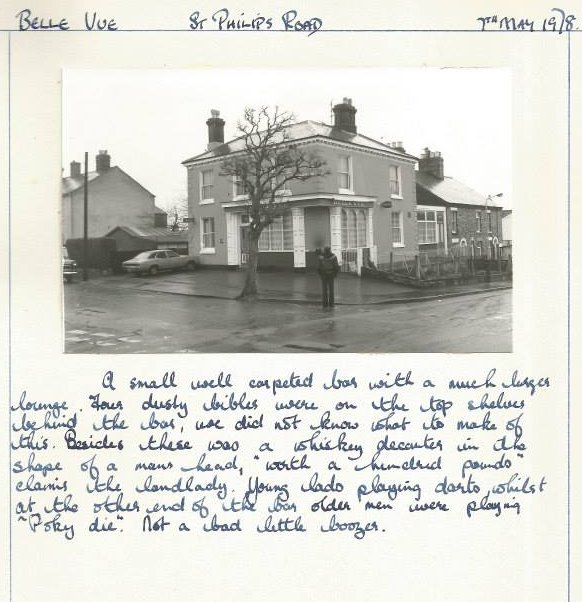 BELLE VUE ST PHILIPS ROAD 7TH MAY 1978.
A small well carpeted bar with a much larger
lounge. Four dusty bibles were on the top shelves
behind the bar, we did not know what to make of
this. Besides these was a whiskey decanter in the
shape of a mans head, "worth a hundred pounds"
claims the landlady. Young lads playing darts, whilst
at the other end of the bar older men were playing
"Poky die". Not a bad little boozer.